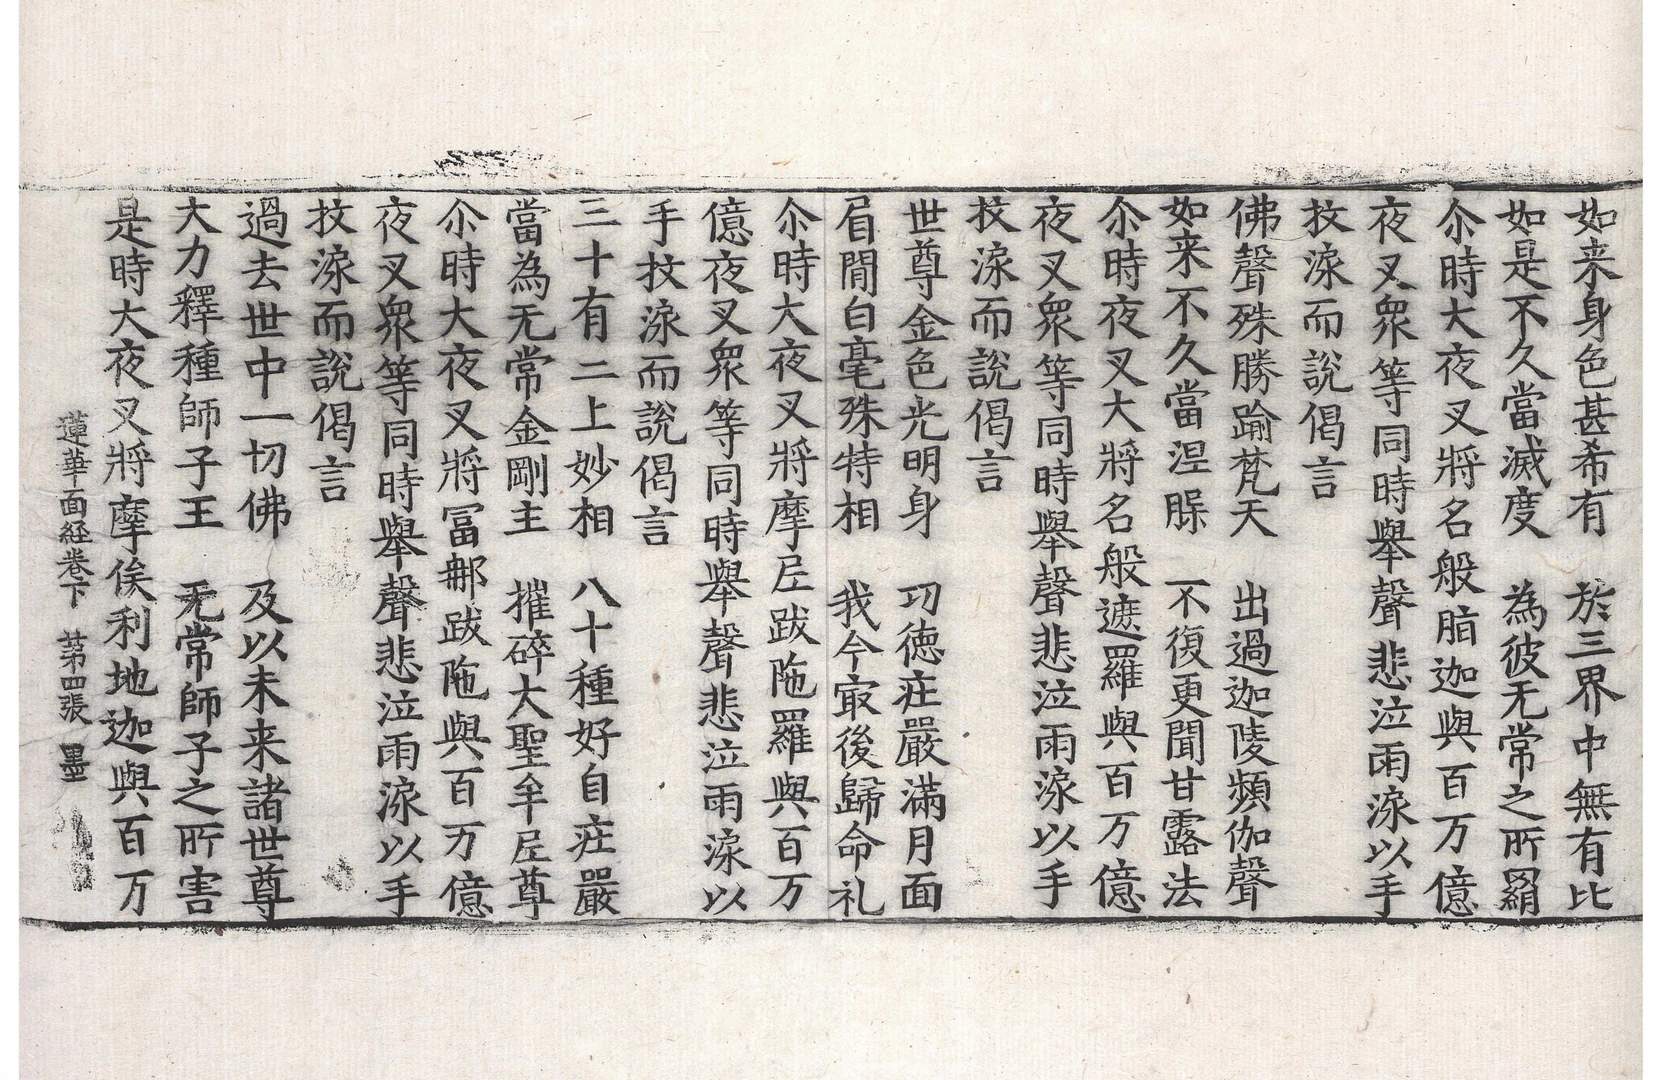 如来身色甚希有　於三界中無有比
如是不久當滅度　為彼无常之所羂
尒時大夜叉將名般脂迦與百万億
夜叉衆等同時舉聲悲泣雨淚以手
抆淚而說偈言
佛聲殊勝踰梵天　出過迦陵頻伽聲
如来不久當涅槃　不復更聞甘露法
尒時夜叉大將名般遮羅與百万億
夜叉衆等同時舉聲悲泣雨淚以手
抆淚而說偈言
世尊金色光明身　功徳庄嚴滿月面
眉間白毫殊特相　我今㝡後歸命礼
尒時大夜叉將摩尼跋陁羅與百万
億夜叉衆等同時舉聲悲泣雨淚以
手抆淚而說偈言
三十有二上妙相　八十種好自庄嚴
當為无常金剛主　摧碎大聖牟尼尊
尒時大夜叉將冨郍跋陁與百万億
夜叉衆等同時舉聲悲泣雨淚以手
抆淚而說偈言
過去世中一切佛　及以未来諸世尊
大力釋種師子王　无常師子之所害
是時大夜叉將摩俟利地迦與百万
蓮華面経卷下　苐四張　墨